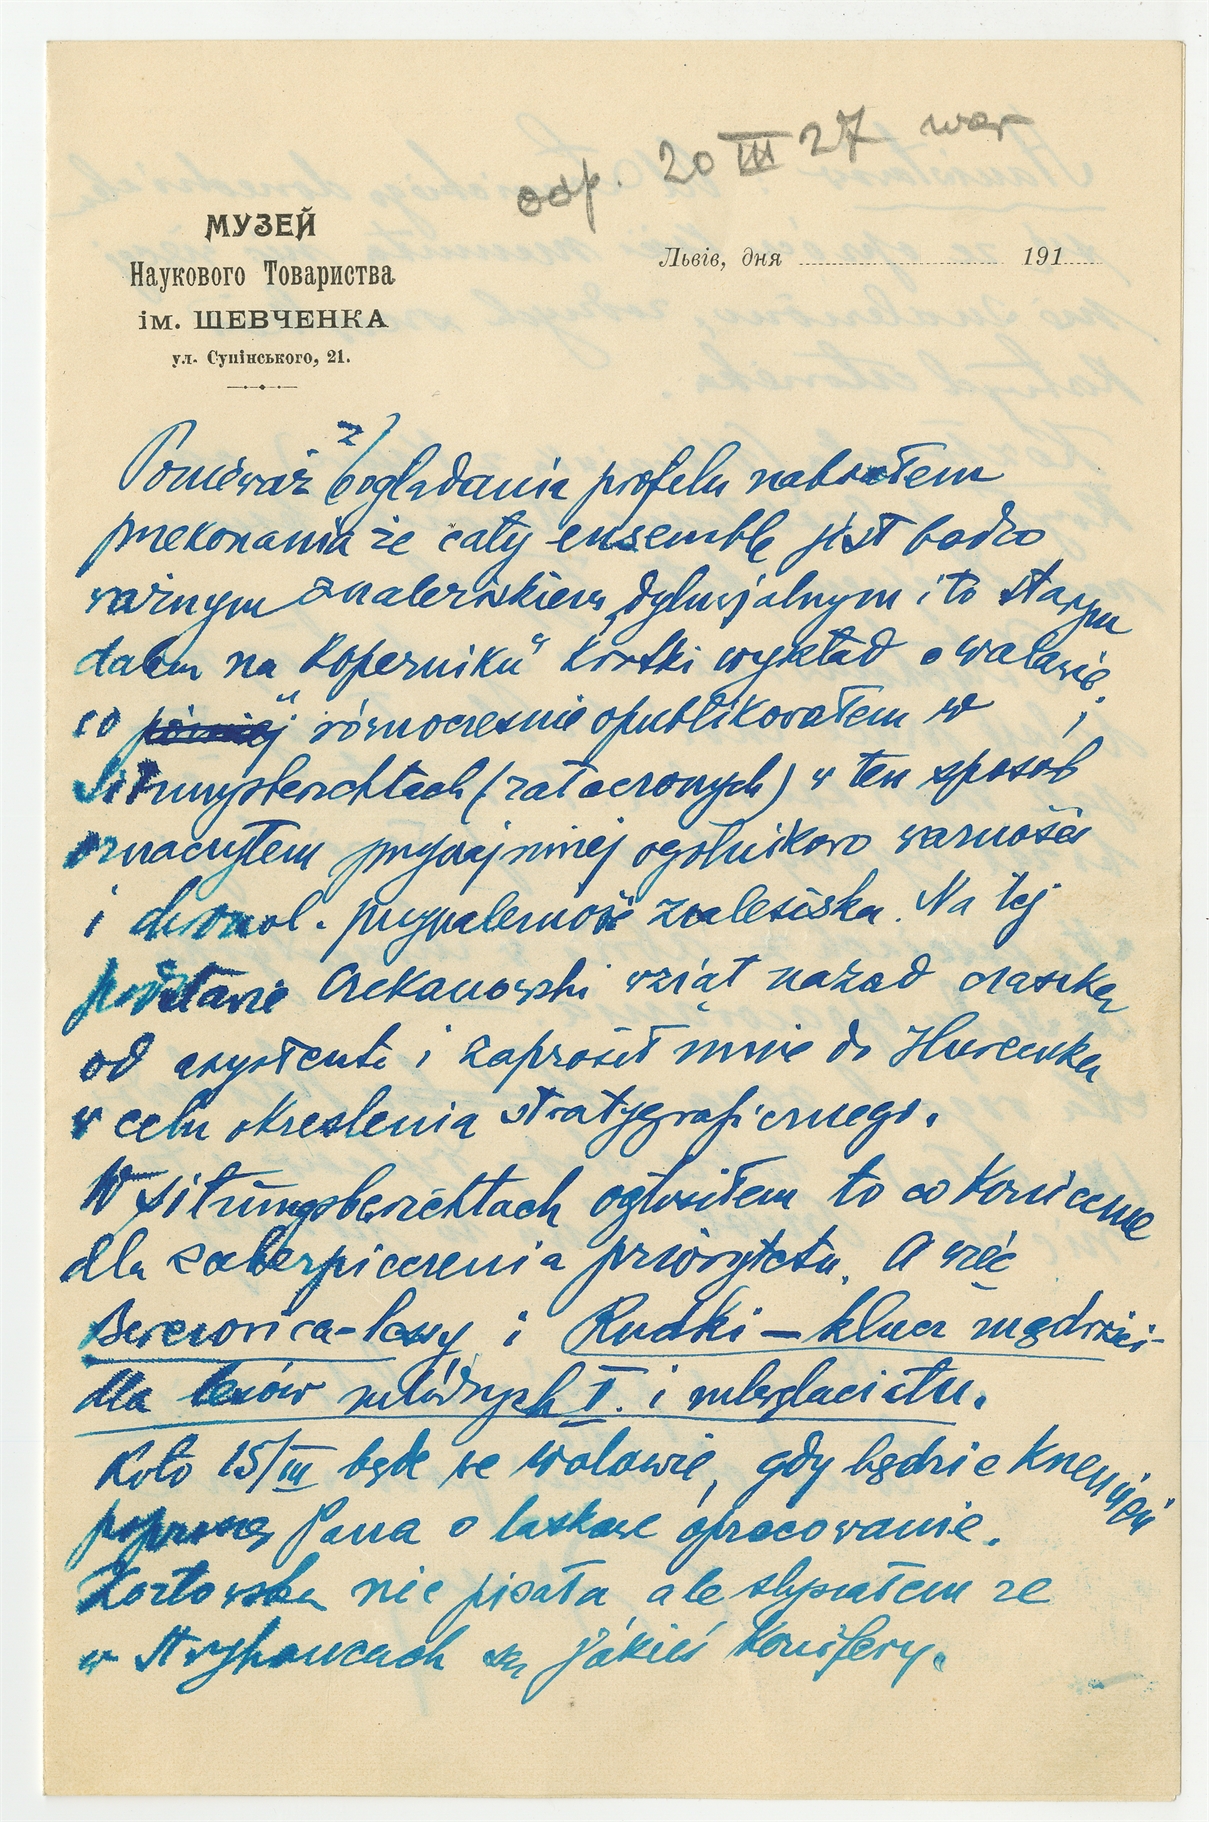 odp. 20 III 27 war
МУЗЕЙ
Наукового Товариства
ім. ШЕВЧЕНКА
ул. Супінського, 21.
Львів, дня 191
Ponieważ z oglądania profilu nabrałem
przekonania że cały ensemble jest bardzo
ważnym znaleziskiem dyluwjalnym i to starym
dałem na „Koperniku" krótki wykład o Walawie,
co później równocześnie opublikowałem w
Sitzungsberichtach (załączonych) w ten sposób
oznaczyłem przynajmniej ogólnikowo ważność
i chronol. przynależność znaleziska. Na tej
podstawie Czekanowski wziął nazad czaszkę
od asystenta i zaprosił mnie do
w celu określenia stratygraficznego.
W Sitzungsberichtach ogłosiłem to co konieczne
dla zabezpieczenia priorytetu. A więc
Berezowica-lessy i Rudki — klucz mądrości
dla lessów młodszych I. i interglaciału.
Koło 15/III będę we Walawie, gdy będzie
poproszę Pana o łaskawe opracowanie.
Kozłowska nie pisała ale słyszałem że
w są jakieś Konifery.